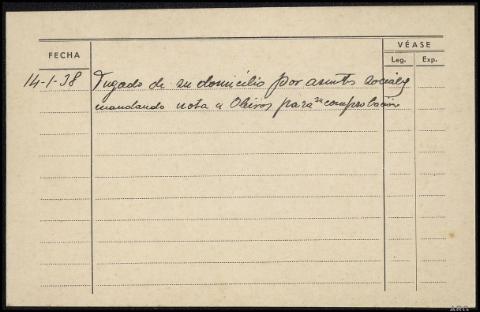 FECHA
VÉASE
Leg. Exp.
14-1-38 Fugado de su domicilio por asuntos sociales
mandando nota a Oleiros para su comprobación